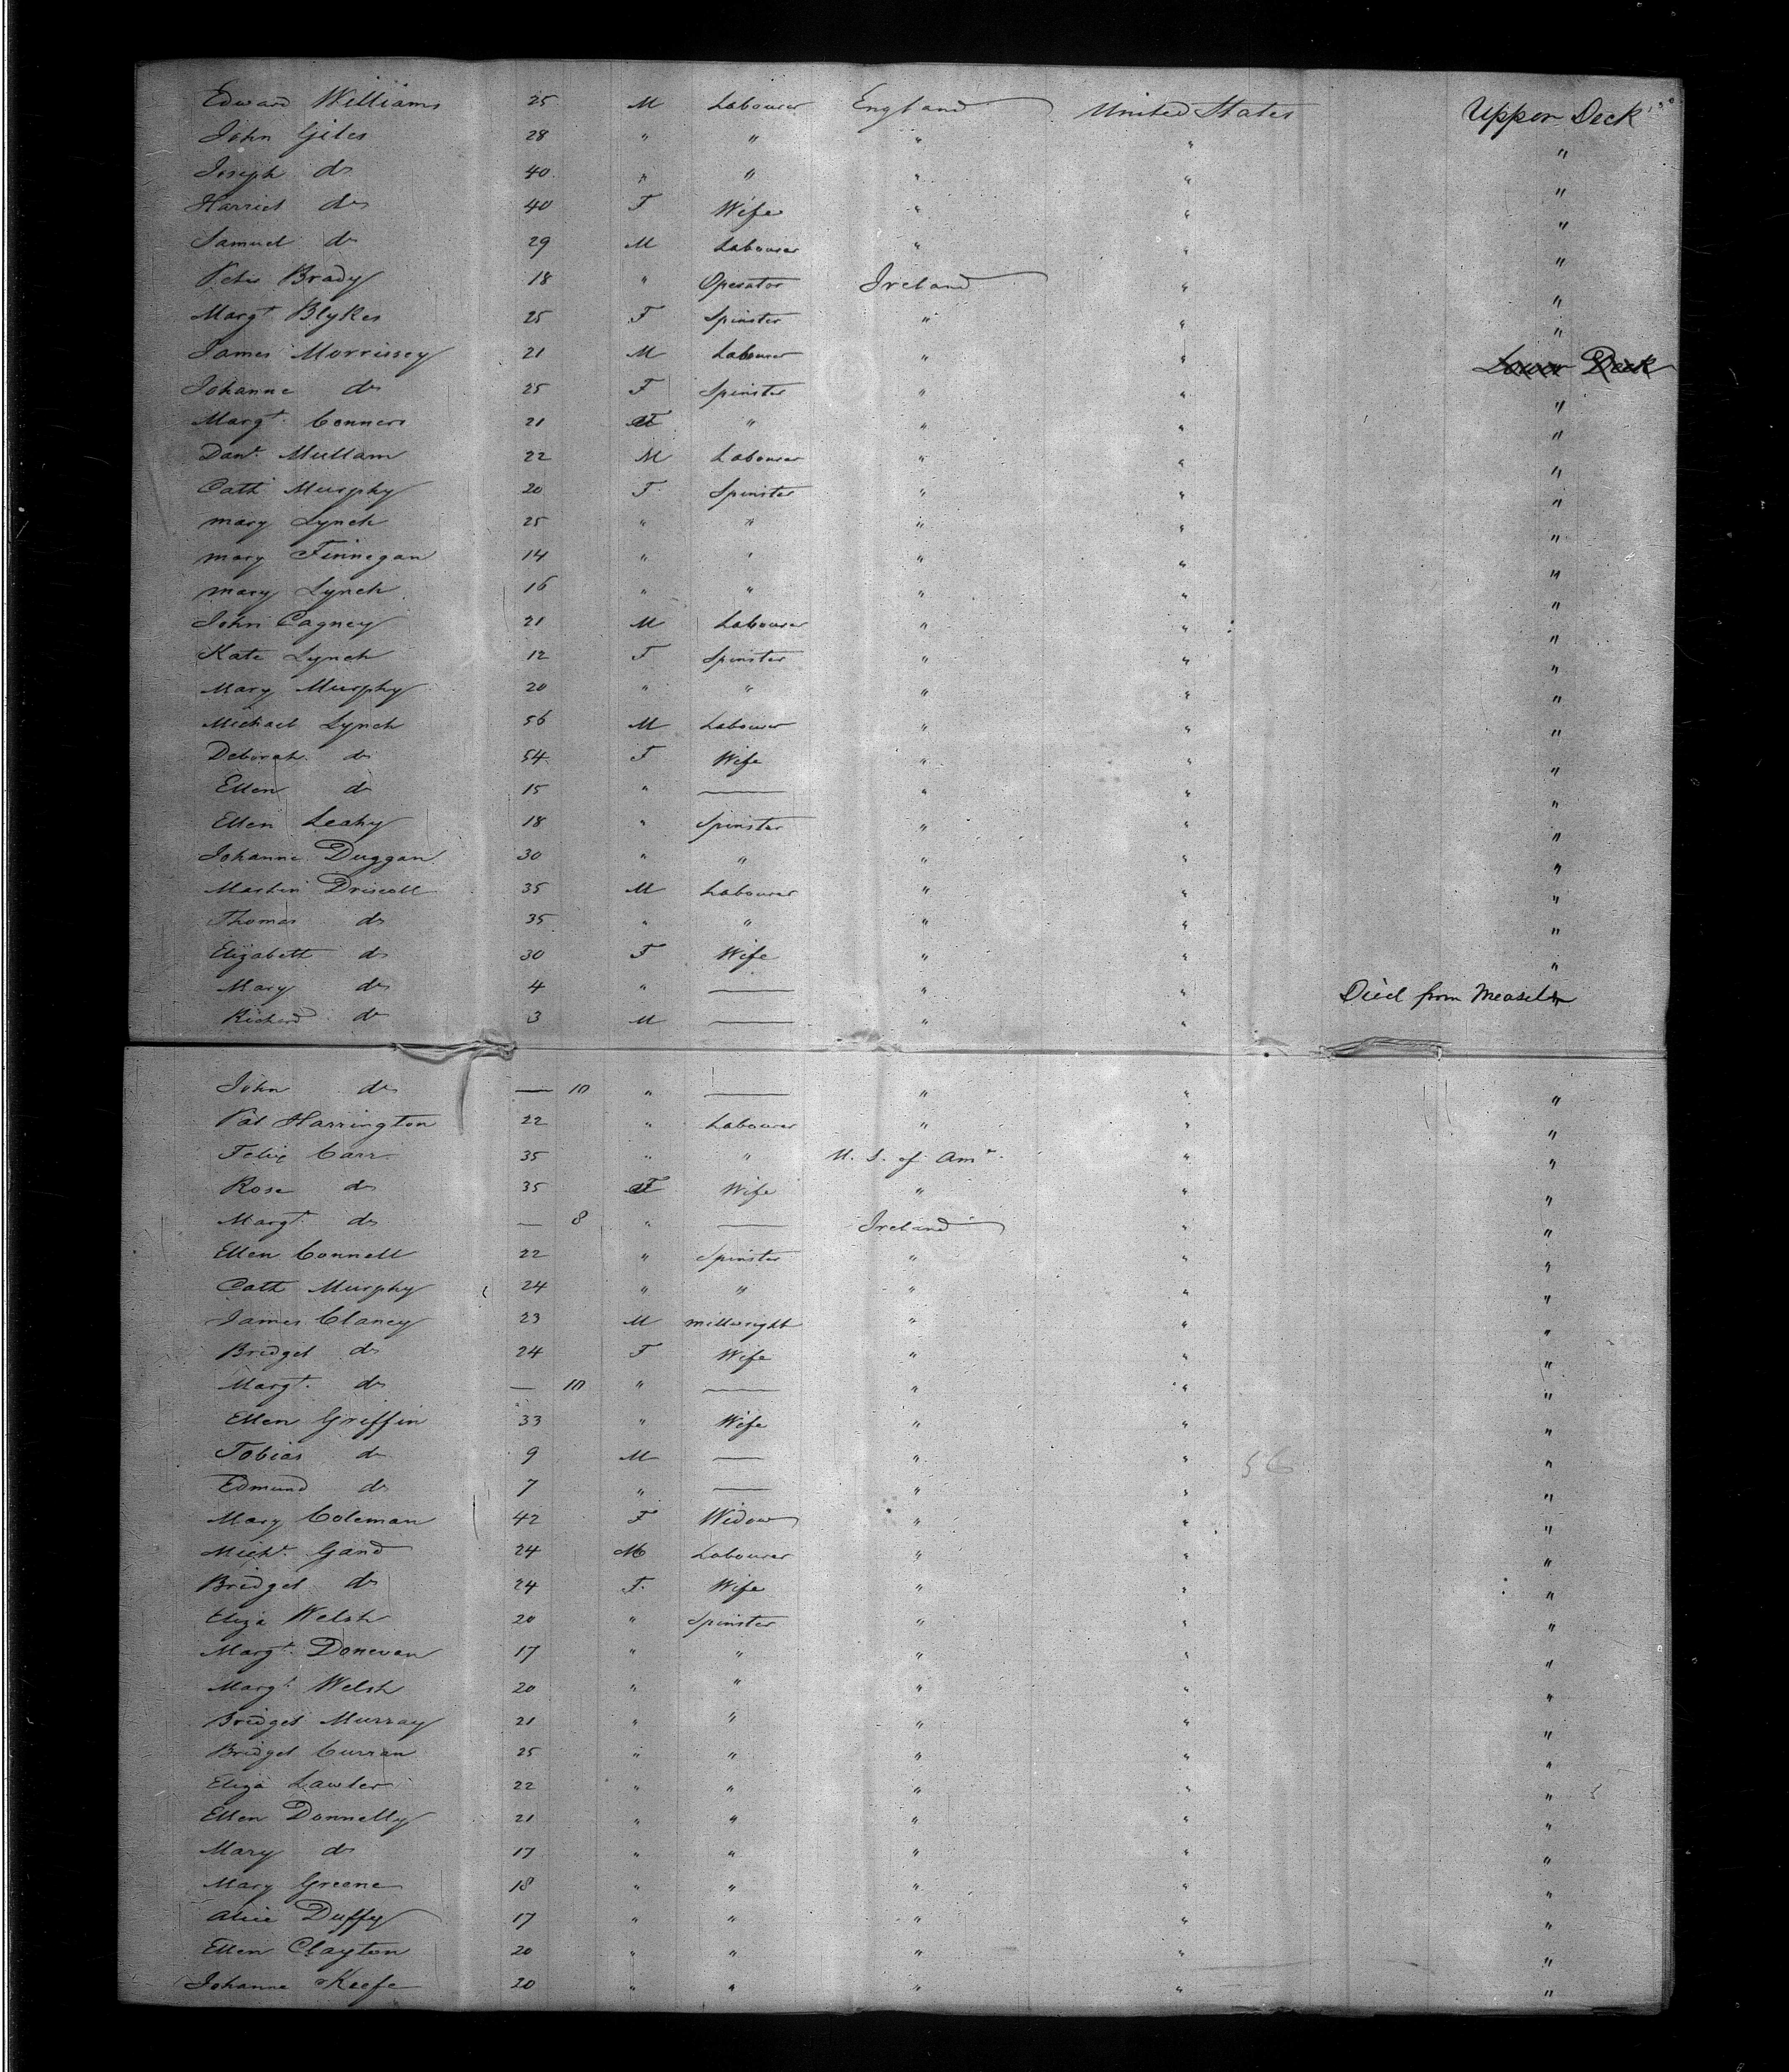 Edward Williams 25 M Labourer England United States Upper Deck
John Giles 28 " " " " "
Joseph do 40 " " " " "
Harriet do 40 F Wife " " "
Samuel do 29 M Labourer " " "
Peter Brady 18 " Operator Ireland " "
Margt Blykes 25 F Spinster " " "
James Morrissey 21 M Labourer " " Lower Deck
Johanne do 25 F Spinster " " "
Margt. Conners 21 F " " " "
Danl. Mullam 22 M Labourer " " "
Cath Murphy 20 F Spinster " " "
Mary Lynch 25 " " " " "
Mary Finnegan 14 " " " " "
Mary Lynch 16 " " " " "
John Cagney 21 M Labourer " " "
Kate Lynch 12 F Spinster " " "
Mary Murphy 20 " " " " "
Michael Lynch 56 M Labourer " " "
Deborah do 54 F Wife " " "
Ellen do 15 " — " " "
Ellen Leahy 18 " Spinster " " "
Johanne Duggan 30 " " " " "
Martin Driscoll 35 M Labourer " " "
Thomas do 35 " " " " "
Elizabeth do 30 F Wife " " "
Mary do 4 " — " " Died from Measels
Richard do 3 M — " "
John do — 10 " — " " "
Pat Harrington 22 " Labourer " " "
Felix Carr 35 " " U. S. of Amr. " "
Rose do 35 F Wife " " "
Margt. do — 8 " — Ireland " "
Ellen Connell 22 " Spinster " " "
Cath Murphy 24 " " " " "
James Clancy 23 M Millwright " " "
Bridget do 24 F Wife " " "
Margt. do — 10 " — " " "
Ellen Griffin 33 " Wife " " "
Tobias do 9 M — " " 56 "
Edmund do 7 " — " " "
Mary Coleman 42 F Widow " " "
Michl. Gand 24 M Labourer " " "
Bridget do 24 F. Wife " " "
Eliza Welsh 20 " Spinster " " "
Margt. Donevan 17 " " " " "
Margt. Welsh 20 " " " " "
Bridget Murray 21 " " " " "
Bridget Curran 25 " " " " "
Eliza Lawler 22 " " " " "
Ellen Donnelly 21 " " " " "
Mary do 17 " " " " "
Mary Greene 18 " " " " "
Alice Duffy 17 " " " " "
Ellen Clayton 20 " " " " "
Johanna Keefe 20 " " " " "